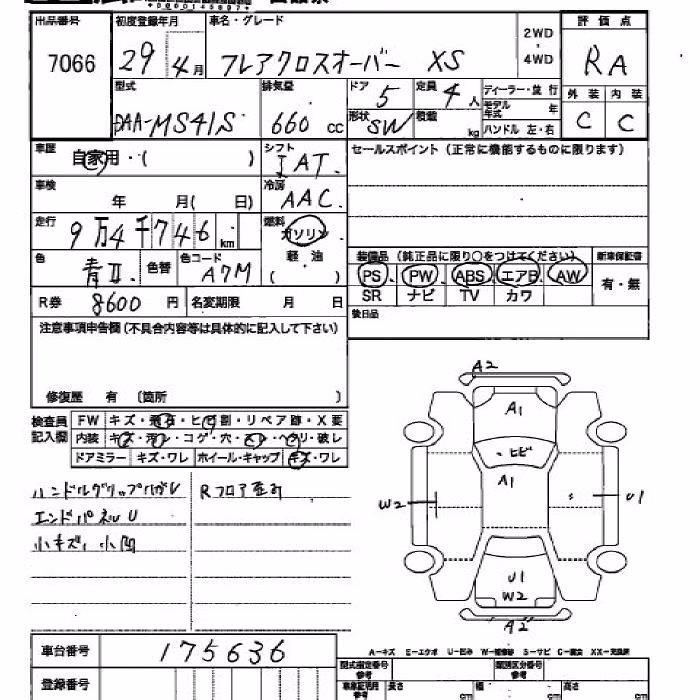 出品番号 初度登録年月 車名・グレード 評価点
7066 29年4月 フレアクロスオーバー XS 2WD・4WD RA
型式 排気量 ドア 定員 ディーラー・並行 外装 内装
DAA-MS41S 660cc 5 4人 モデル年式 年 C C
形状 SW 積載 kg ハンドル 左・右
車歴 自家用・( ) シフト IAT. セールスポイント(正常に機能するものに限ります)
車検 年 月( 日) 冷房 AAC.
走行 9万4千746km 燃料 ガソリン 軽油 ( )
色 青II. 色替 色コード A7M
装備品(純正品に限り○をつけてください) 新車保証書
PS PW ABS エアB AW 有・無
SR ナビ TV カワ
R券 8600円 名変期限 月 日
後日品
注意事項申告欄(不具合内容等は具体的に記入して下さい)
修復歴 有 (箇所 )
検査員記入欄 FW キズ・飛石・ヒビ割・リペア跡・X要
内装 キズ・汚レ・コゲ・穴・スレ・ヘタリ・破レ
ドアミラー キズ・ワレ ホイール・キャップ キズ・ワレ
ハンドルグリップハガレ Rフロア歪ミ
エンドパネルU
小キズ, 小凹
A2
A1
・ヒビ
A1
W2 U1
U1
W2
A2
車台番号 175636
A-キズ E-エクボ U-凹み W-補修跡 S-サビ C-腐食 XX-交換済
登録番号 型式指定番号 参考 類別区分番号 参考
車庫証明用 参考 長さ cm 幅 cm 高さ cm